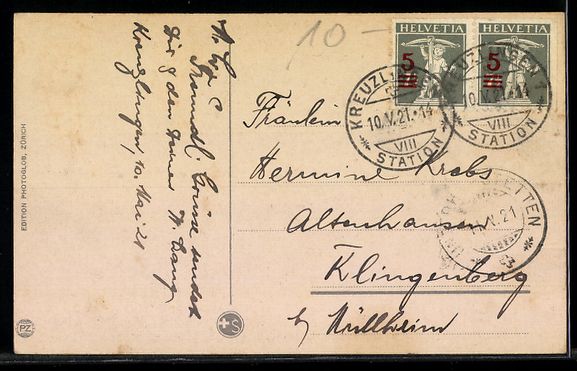 10 –
HELVETIA HELVETIA
5 5
KREUZLINGEN
10.V.21.-14
VIII
STATION
KREUZLINGEN 1
10.V.21.-14
VIII
STATION
Fräulein
Hermine Krebs
Altenhausen
Klingenberg
b/ Müllheim
V.21
Freundl. Grüsse sendet
Dir & den Deinen W. Lang
Kreuzlingen, 10. Mai 21
EDITION PHOTOGLOB, ZÜRICH
PZ
+S